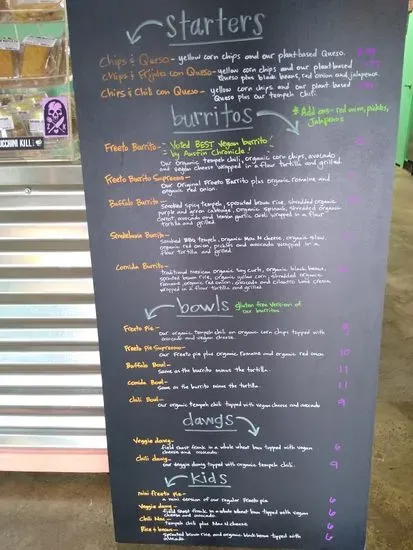 starters
Chips & Queso - yellow corn chips and our plant-based Queso.
Chips & Frijole con Queso - yellow corn chips and our plant-based
Queso plus black beans, red onion and jalapenos.
Chips & Chili con Queso - yellow corn chips, and our plant based
Queso plus our tempeh chili.
burritos
* Add ons - red onion, pickles,
Jalapenos
Freeto Burrito - Voted BEST vegan burrito
by Austin Chronicle!
Our Organic tempeh chili, organic corn chips, avocado
and vegan cheese wrapped in a flour tortilla and grilled.
Freeto Burrito Supremo -
Our Original Freeto Burrito plus organic romaine and
organic red onion.
Buffalo Burrito -
Smoked spicy tempeh, sprouted brown rice, shredded organic
purple and green cabbage, organic spinach, shredded organic
carrot, avocado and lemon garlic aioli wrapped in a flour
tortilla and grilled
Burrito -
Smoked BBQ tempeh, organic Mac N cheese, organic slaw,
organic red onion, pickles and avocado wrapped in a
flour tortilla and grilled.
Comida Burrito -
traditional Mexican organic soy curls, organic black beans,
sprouted brown rice, organic yellow corn, shredded organic
romaine, organic red onion, avocado and cilantro lime crema
wrapped in a flour tortilla and grilled
bowls
gluten free version of
our burritos
Freeto pie - 9
our organic tempeh chili on organic corn chips topped with
avocado and vegan cheese.
Freeto pie Supremo - 10
our Freeto pie plus organic romaine and organic red onion
Buffalo Bowl - 11
same as the burrito minus the tortilla.
Comida Bowl - 11
same as the burrito minus the tortilla.
Chili Bowl - 9
our organic tempeh chili topped with vegan cheese and avocado
dawgs
Veggie dawg - 6
field roast frank in a whole wheat bun topped with vegan
cheese and avocado.
Chili dawg - 9
our veggie dawg topped with organic tempeh chili.
kids
mini freeto pie - 6
a mini version of our regular freeto pie
Veggie dawg - 6
field roast frank in a whole wheat bun topped with vegan
cheese and avocado.
Chili Mac - 6
tempeh chili plus Mac N cheese
Rice + beans - 6
Sprouted brown rice and organic black beans topped with
avocado
ZUCCHINI KILL